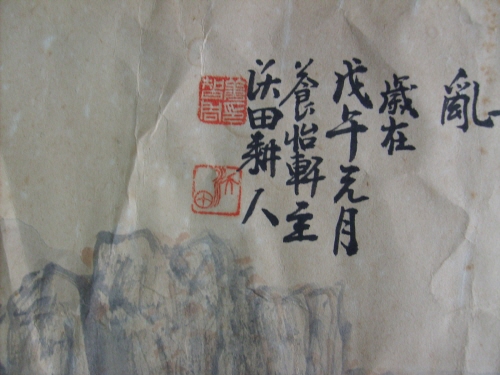 亂
歲在
戊午元月
養怡軒主
沃田耕人